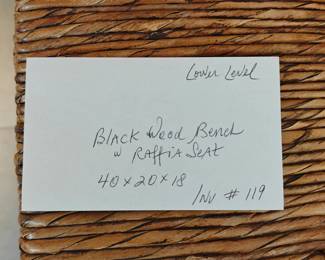 Lower Level
Black Wood Bench
w Raffia Seat
40 x 20 x 18
Inv # 119